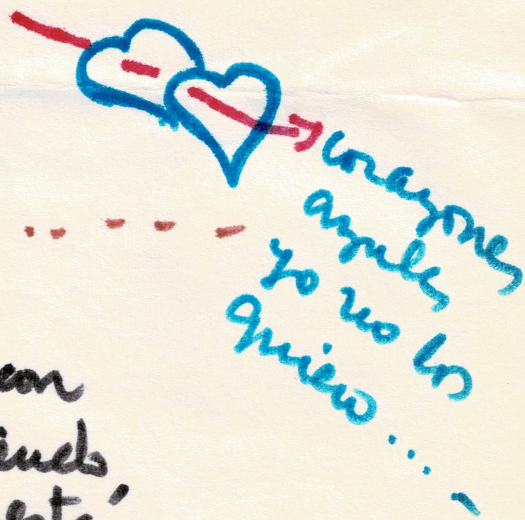 corazones
azules
yo no los
quiero...
con
está